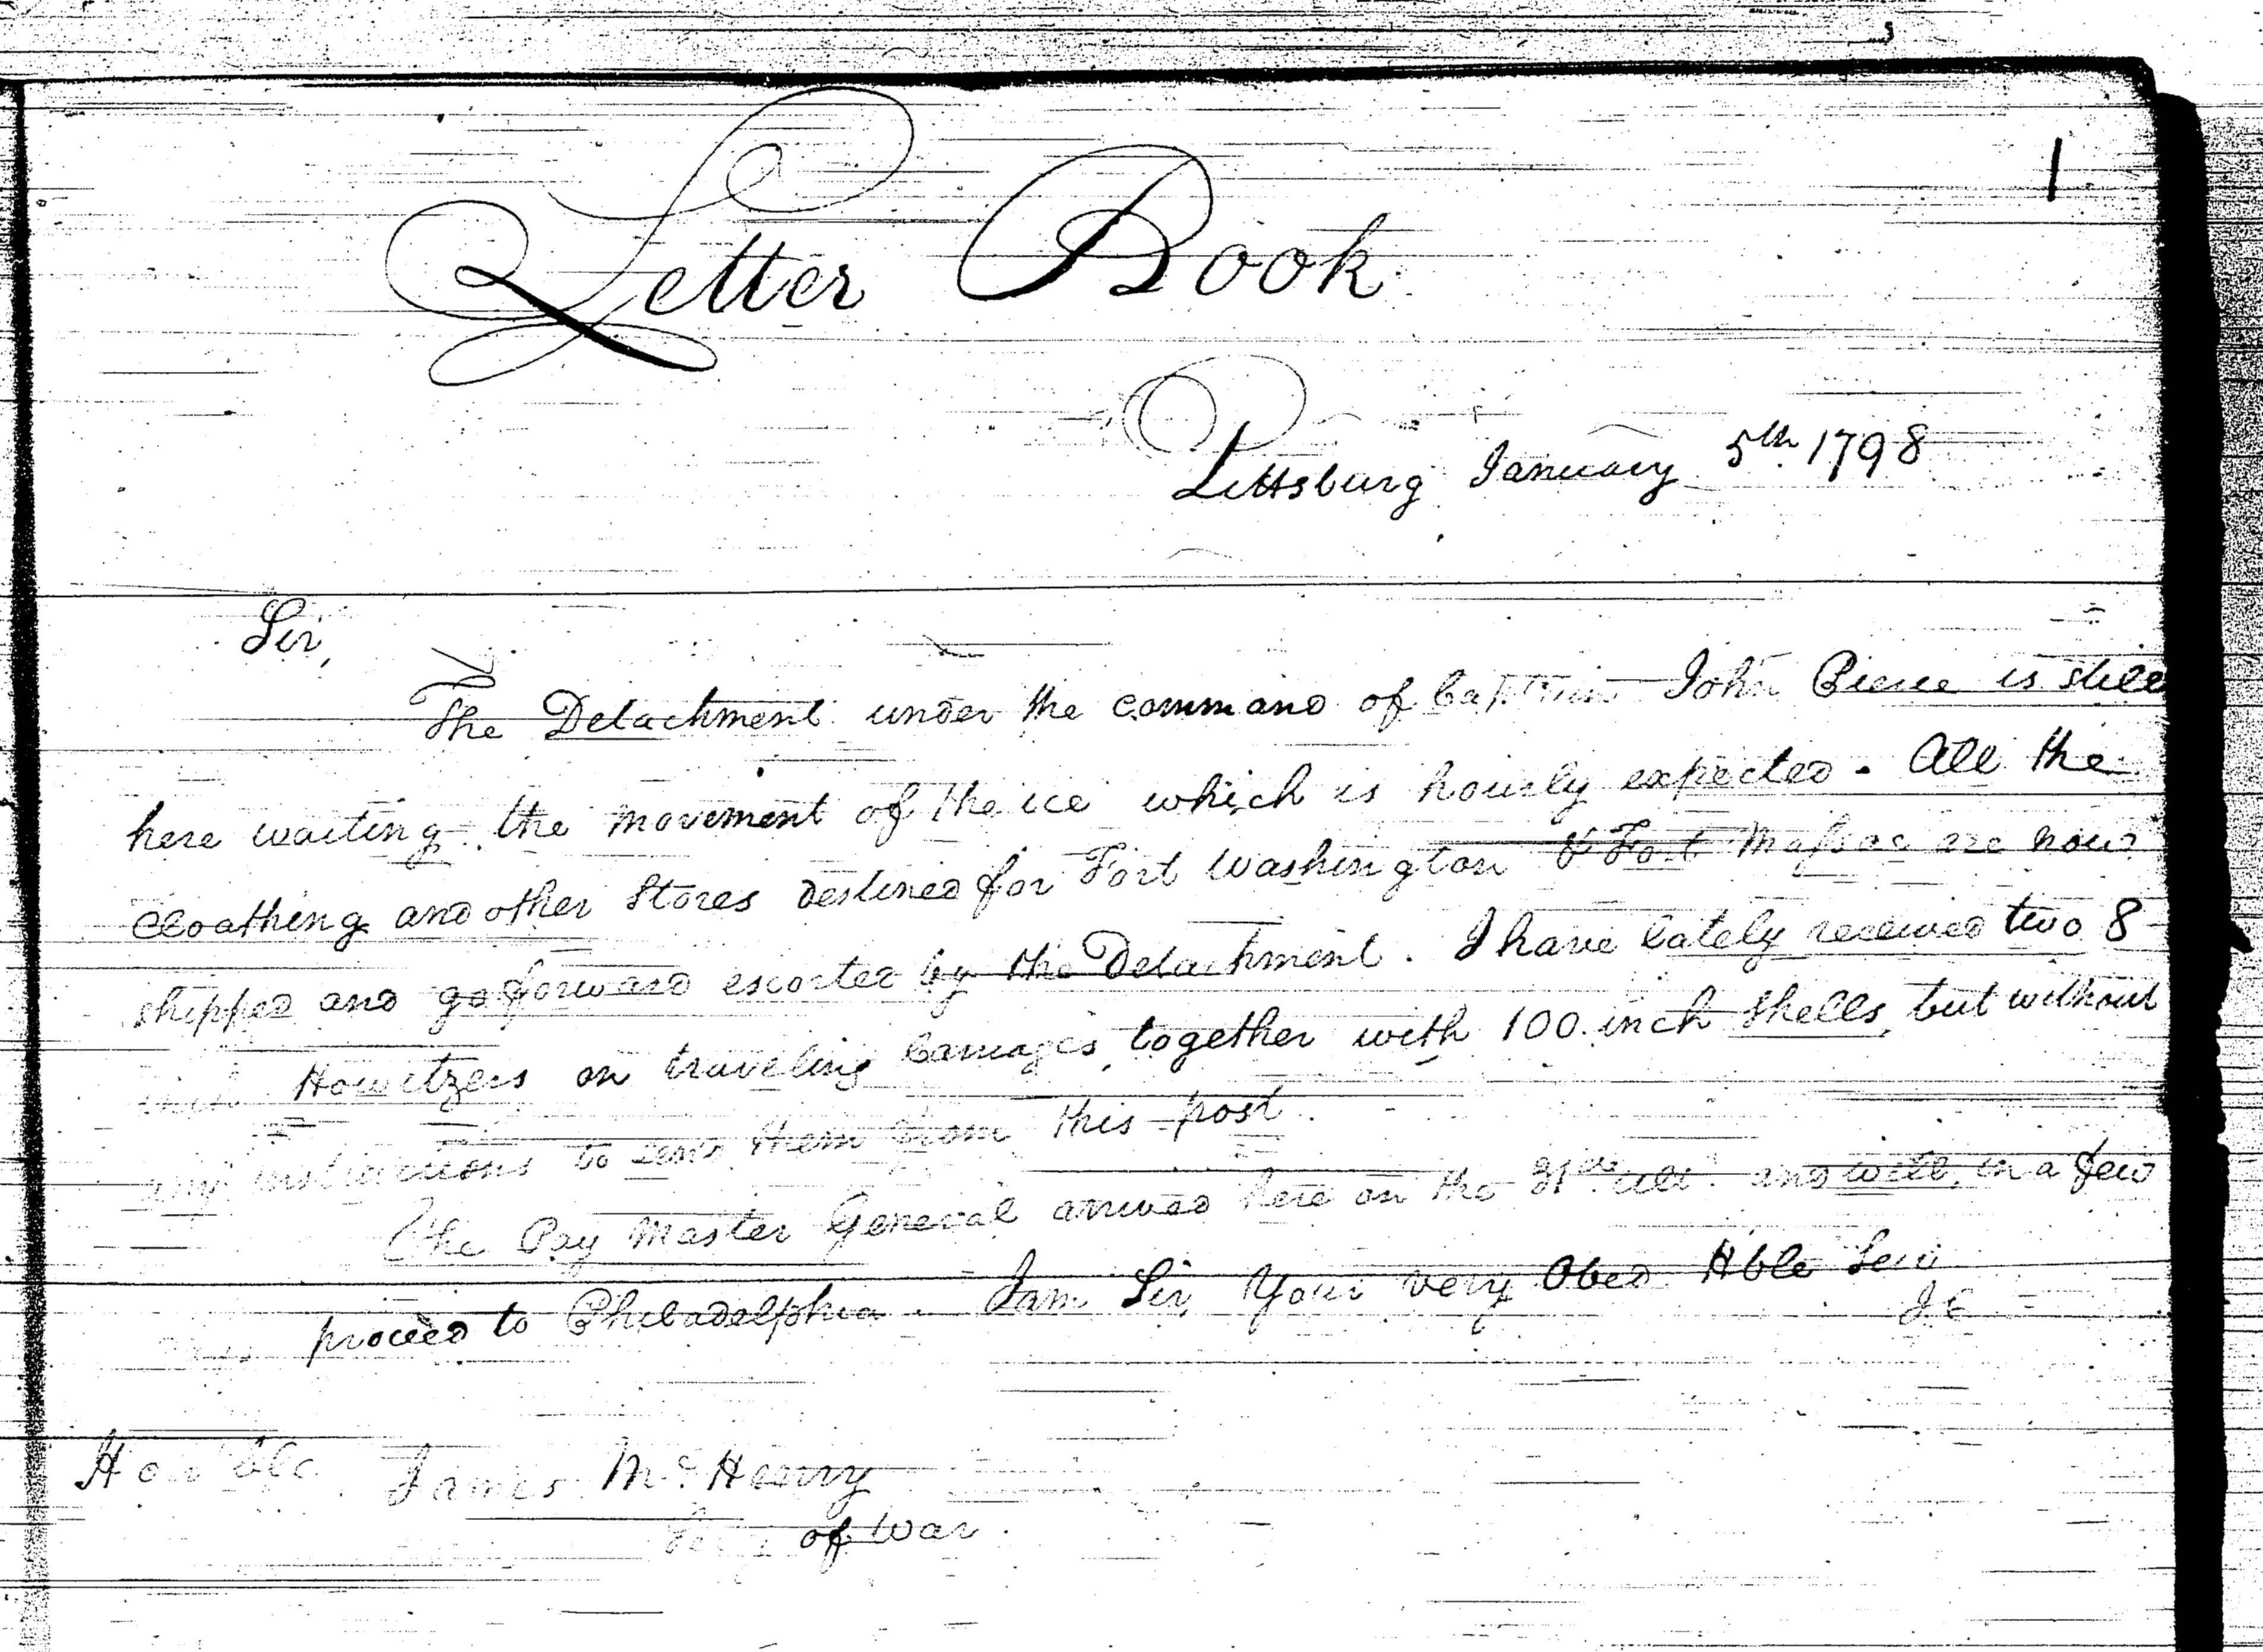 1
Letter Book
Pittsburg January 5th 1798
Sir,
The Detachment under the command of Captain John Pierce is still
here waiting the movement of the ice which is hourly expected. All the
Cloathing and other Stores destined for Fort Washington & Fort Massac are now
shipped and go forward escorted by the Detachment. I have lately received two 8
inch Howitzers on traveling Carriages, together with 100 inch Shells, but without
any instructions to send them from this post.
The Pay Master General arrived here on the 31st ult. and will, in a few
days proceed to Philadelphia. I am Sir Your very Obed Hble Serv
Honble James McHenry
of War